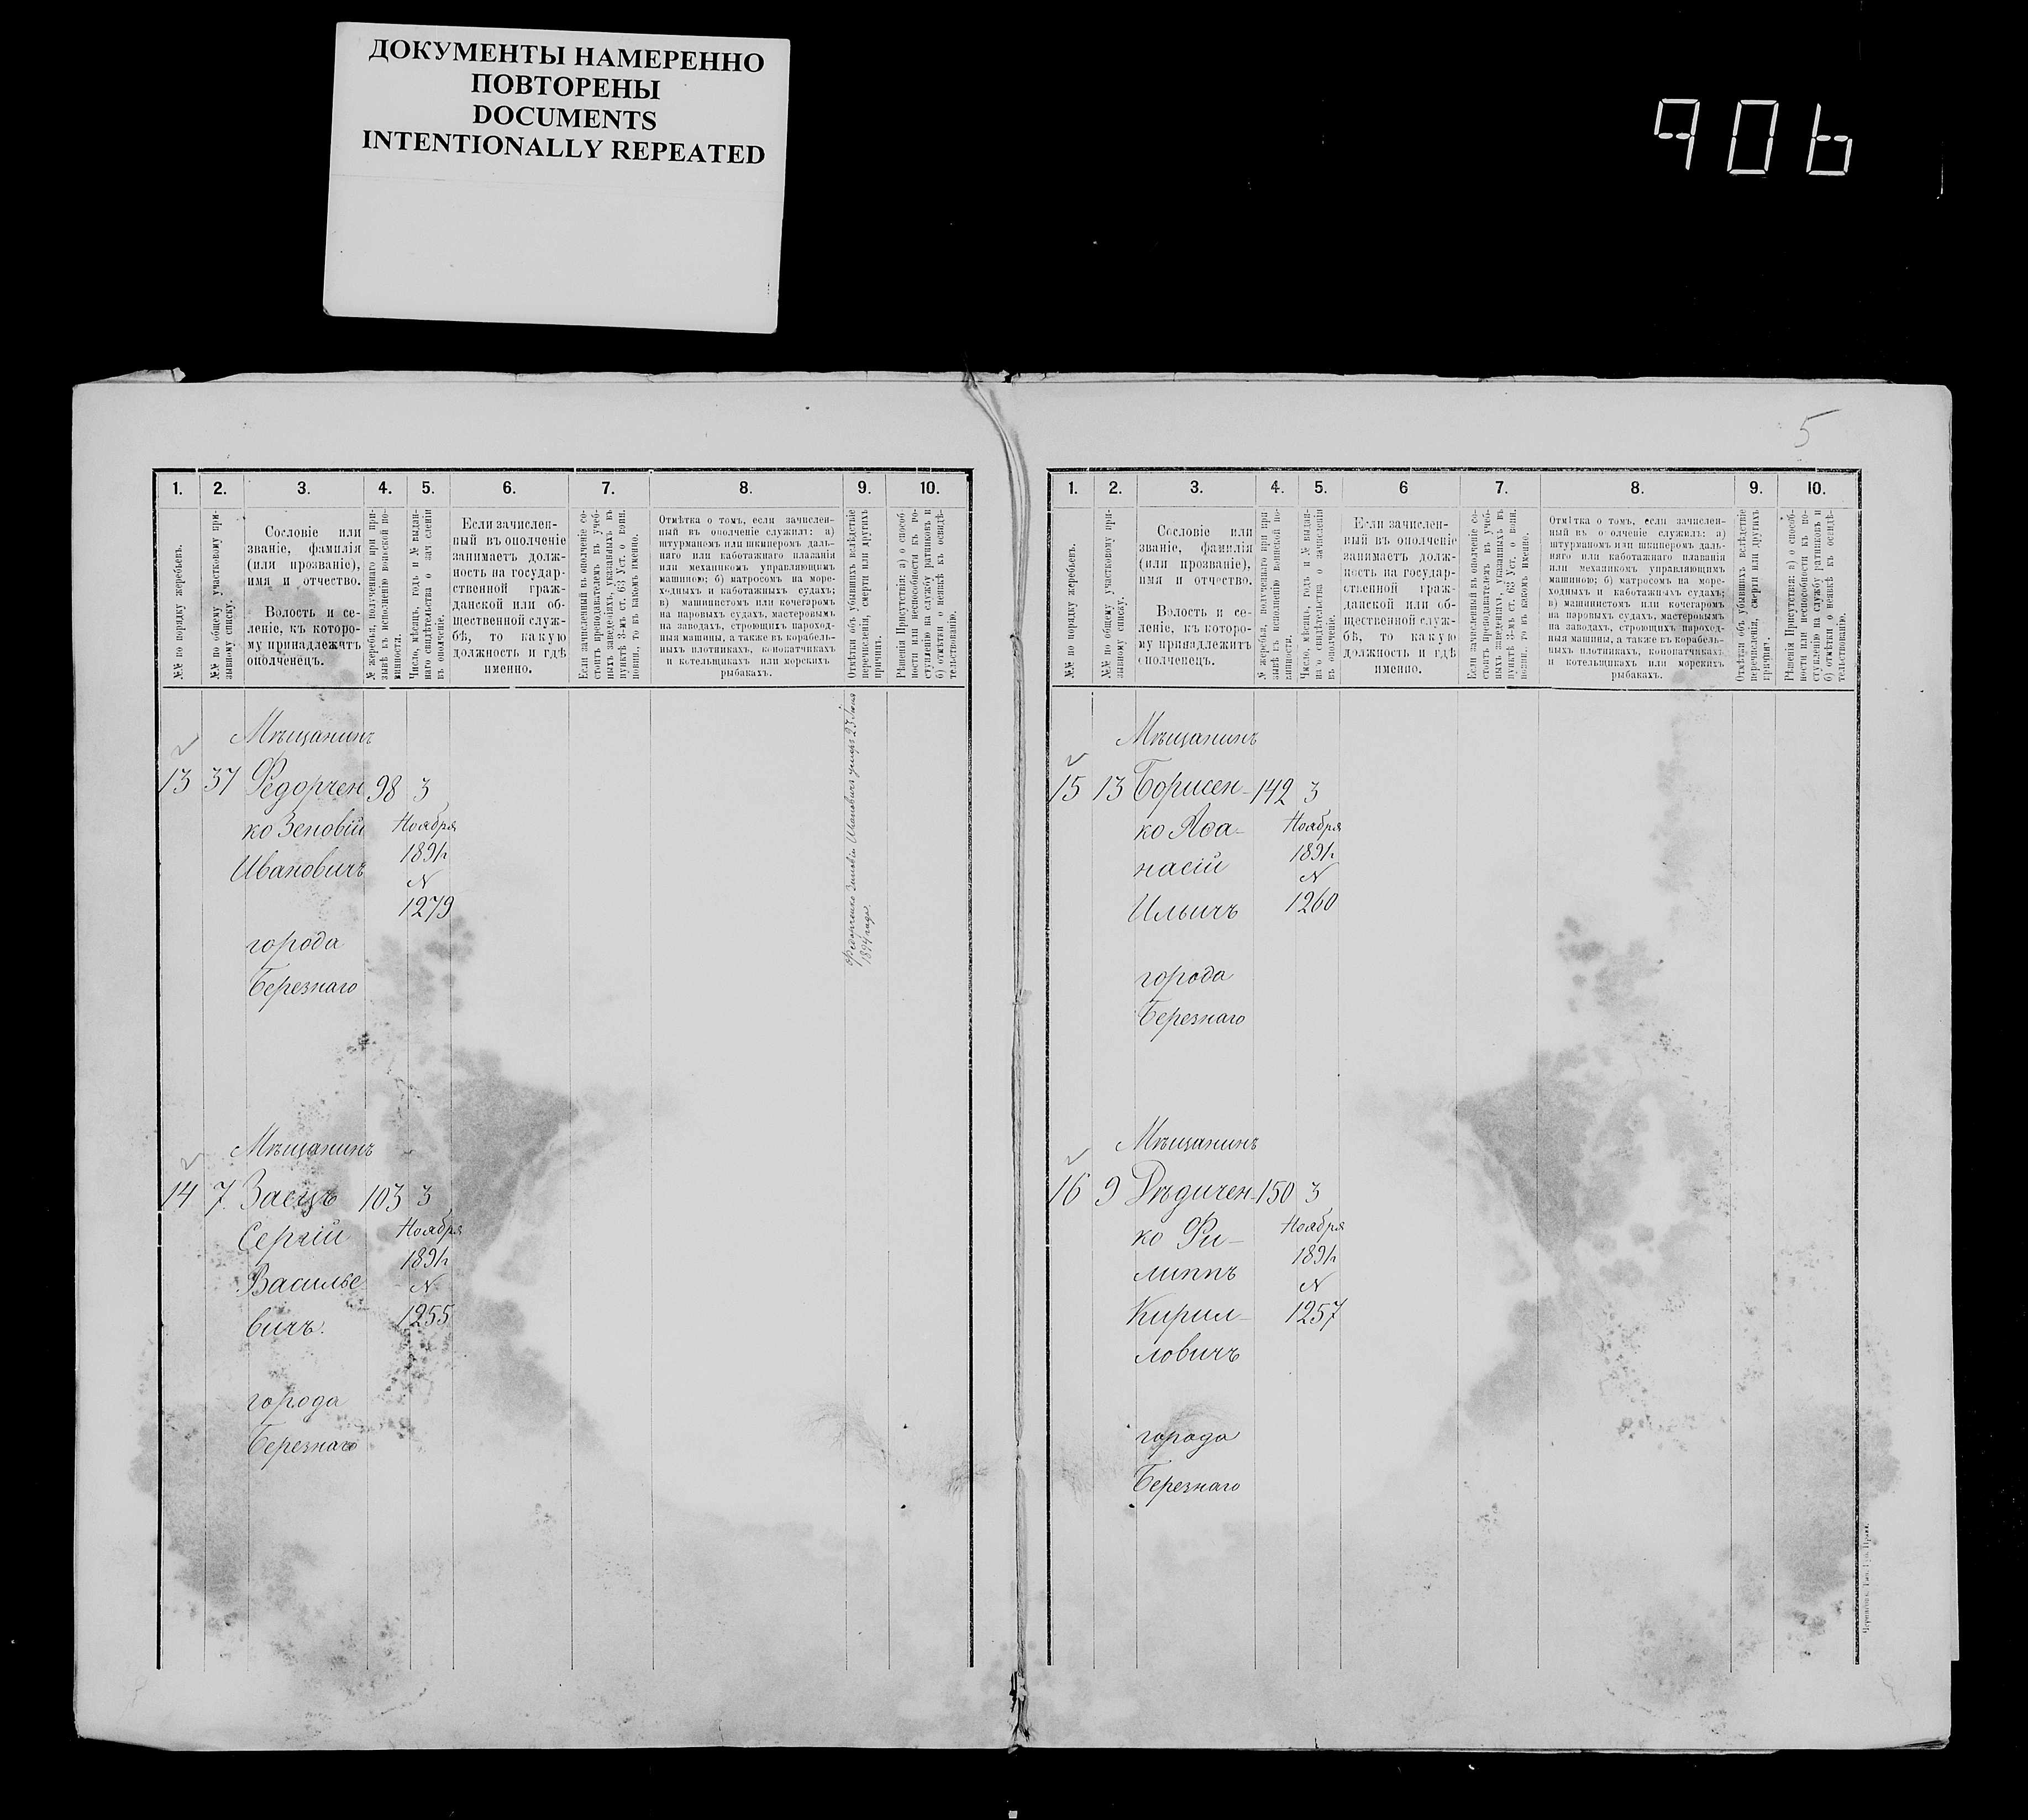 ДОКУМЕНТЫ НАМЕРЕННО
ПОВТОРЕНЫ
DOCUMENTS
INTENTIONALLY REPEATED
906
5
1. 2. 3. 4. 5. 6. 7. 8. 9. 10.
№№ по порядку жеребьевъ.
№№ по общему участковому при-
зывному списку.
Сословіе или
званіе, фамилія
(или прозваніе),
имя и отчество.
Волость и се-
леніе, къ которо-
му принадлежитъ
ополченецъ.
№ жеребья, полученнаго при при-
зывѣ къ исполненію воинской по-
винности.
Число, мѣсяцъ, годъ и № выдан-
наго свидѣтельства о зачисленіи
въ ополченіе.
Если зачислен-
ный въ ополченіе
занимаетъ долж-
ность на государ-
ственной граж-
данской или об-
щественной служ-
бѣ, то какую
должность и гдѣ
именно.
Если зачисленный въ ополченіе со-
стоитъ преподавателемъ въ учеб-
ныхъ заведеніяхъ, указанныхъ въ
пунктѣ 3-мъ ст. 63 Уст. о воин.
повин., то въ какомъ именно.
Отмѣтка о томъ, если зачислен-
ный въ ополченіе служилъ: а)
штурманомъ или шкиперомъ даль-
няго или каботажнаго плаванія
или механикомъ управляющимъ
машиною; б) матросомъ на море-
ходныхъ и каботажныхъ судахъ;
в) машинистомъ или кочегаромъ
на паровыхъ судахъ, мастеровымъ
на заводахъ, строющихъ пароход-
ныя машины, а также въ корабель-
ныхъ плотникахъ, конопатчикахъ
и котельщикахъ или морскихъ
рыбакахъ.
Отмѣтки объ убывшихъ вслѣдствіе
перечисленія, смерти или другихъ
причинъ.
Рѣшенія Присутствія: а) о способ-
ности или неспособности къ по-
ступленію на службу ратниковъ и
б) отмѣтки о неявкѣ къ освидѣ-
тельствованію.
Мѣщанинъ
13 37 Федорчен 98 3
ко Зеновій Ноября
1891г
Ивановичъ
N
1279
города
Березнаго
Федорченко Зиновій Ивановичъ умеръ 23 Іюня
1894 года.
Мѣщанинъ
14 7. Заецъ 103 3
Сергій Ноября
1891г
Василье N
вичъ. 1255
города
Березнаго
1. 2. 3. 4. 5. 6 7. 8. 9. 10.
№№ по порядку жеребьевъ.
№№ по общему участковому при-
зывному списку.
Сословіе или
званіе, фамилія
(или прозваніе),
имя и отчество.
Волость и се-
леніе, къ которо-
му принадлежитъ
ополченецъ.
№ жеребья, полученнаго при при
зывѣ къ исполненію воинской по-
винности.
Число, мѣсяцъ, годъ и № выдан-
наго свидѣтельства о зачисленіи
въ ополченіе.
Если зачислен-
ный въ ополченіе
занимаетъ долж-
ность на государ-
ственной граж-
данской или об-
щественной служ-
бѣ, то какую
должность и гдѣ
именно.
Если зачисленный въ ополченіе со-
стоитъ преподавателемъ въ учеб-
ныхъ заведеніяхъ, указанныхъ въ
пунктѣ 3-мъ ст. 63 Уст. о воин.
повин., то въ какомъ именно.
Отмѣтка о томъ, если зачислен-
ный въ ополченіе служилъ: а)
штурманомъ или шкиперомъ даль-
няго или каботажнаго плаванія
или механикомъ управляющимъ
машиною; б) матросомъ на море-
ходныхъ и каботажныхъ судахъ;
в) машинистомъ или кочегаромъ
на паровыхъ судахъ, мастеровымъ
на заводахъ, строющихъ пароход-
ныя машины, а также въ корабель-
ныхъ плотникахъ, конопатчикахъ
и котельщикахъ или морскихъ
рыбакахъ.
Отмѣтки объ убывшихъ вслѣдствіе
перечисленія, смерти или другихъ
причинъ.
Рѣшенія Присутствія: а) о способ-
ности или неспособности къ по-
ступленію на службу ратниковъ и
б) отмѣтки о неявкѣ къ освидѣ-
тельствованію.
Мѣщанинъ
15 13 Борисен- 142 3
ко Аѳа- Ноября
1891г
насій N
Ильичъ 1260
города
Березнаго
Мѣщанинъ
16 9 Дѣдичен- 150 3
ко Фи- Ноября
1891г
липпъ N
Кирил- 1257
ловичъ
города
Березнаго